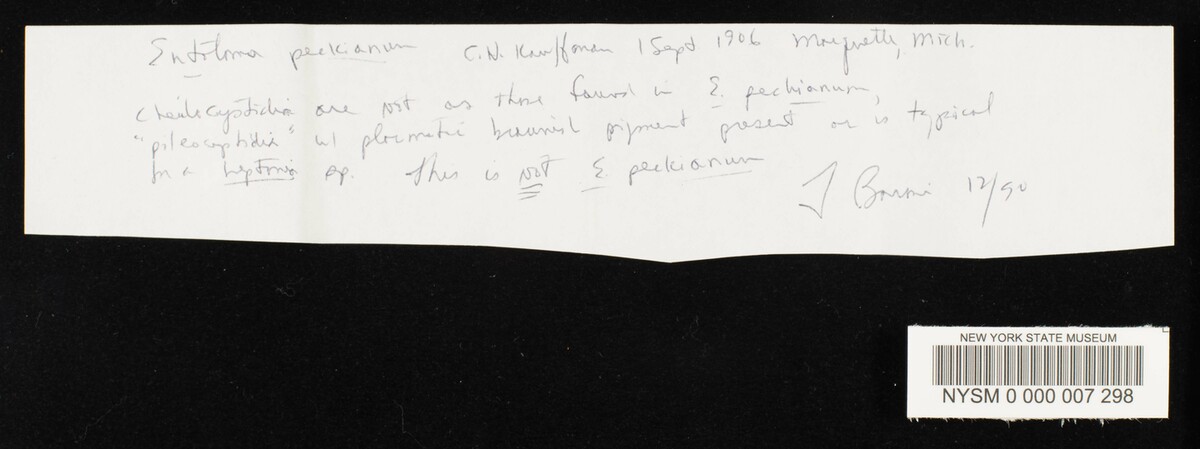 Entoloma peckianum C.H. Kauffman 1 Sept 1906 Marquette, Mich.
Cheilocystidia are not as those found in E. peckianum,
"pileocystidia" w/ plasmatic brownish pigment present as is typical
for a Leptonia sp. This is not E. peckianum
T Baroni 12/90
NEW YORK STATE MUSEUM
NYSM 0 000 007 298